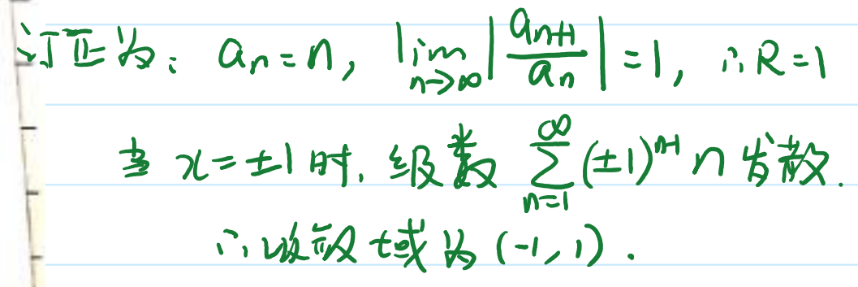 订正为: aₙ=n, lim_{n→∞}|a_{n+1}/aₙ|=1, ∴R=1
当 x=±1时, 级数 ∑_{n=1}^{∞}(±1)^{n-1} n 发散.
∴收敛域为(-1,1).